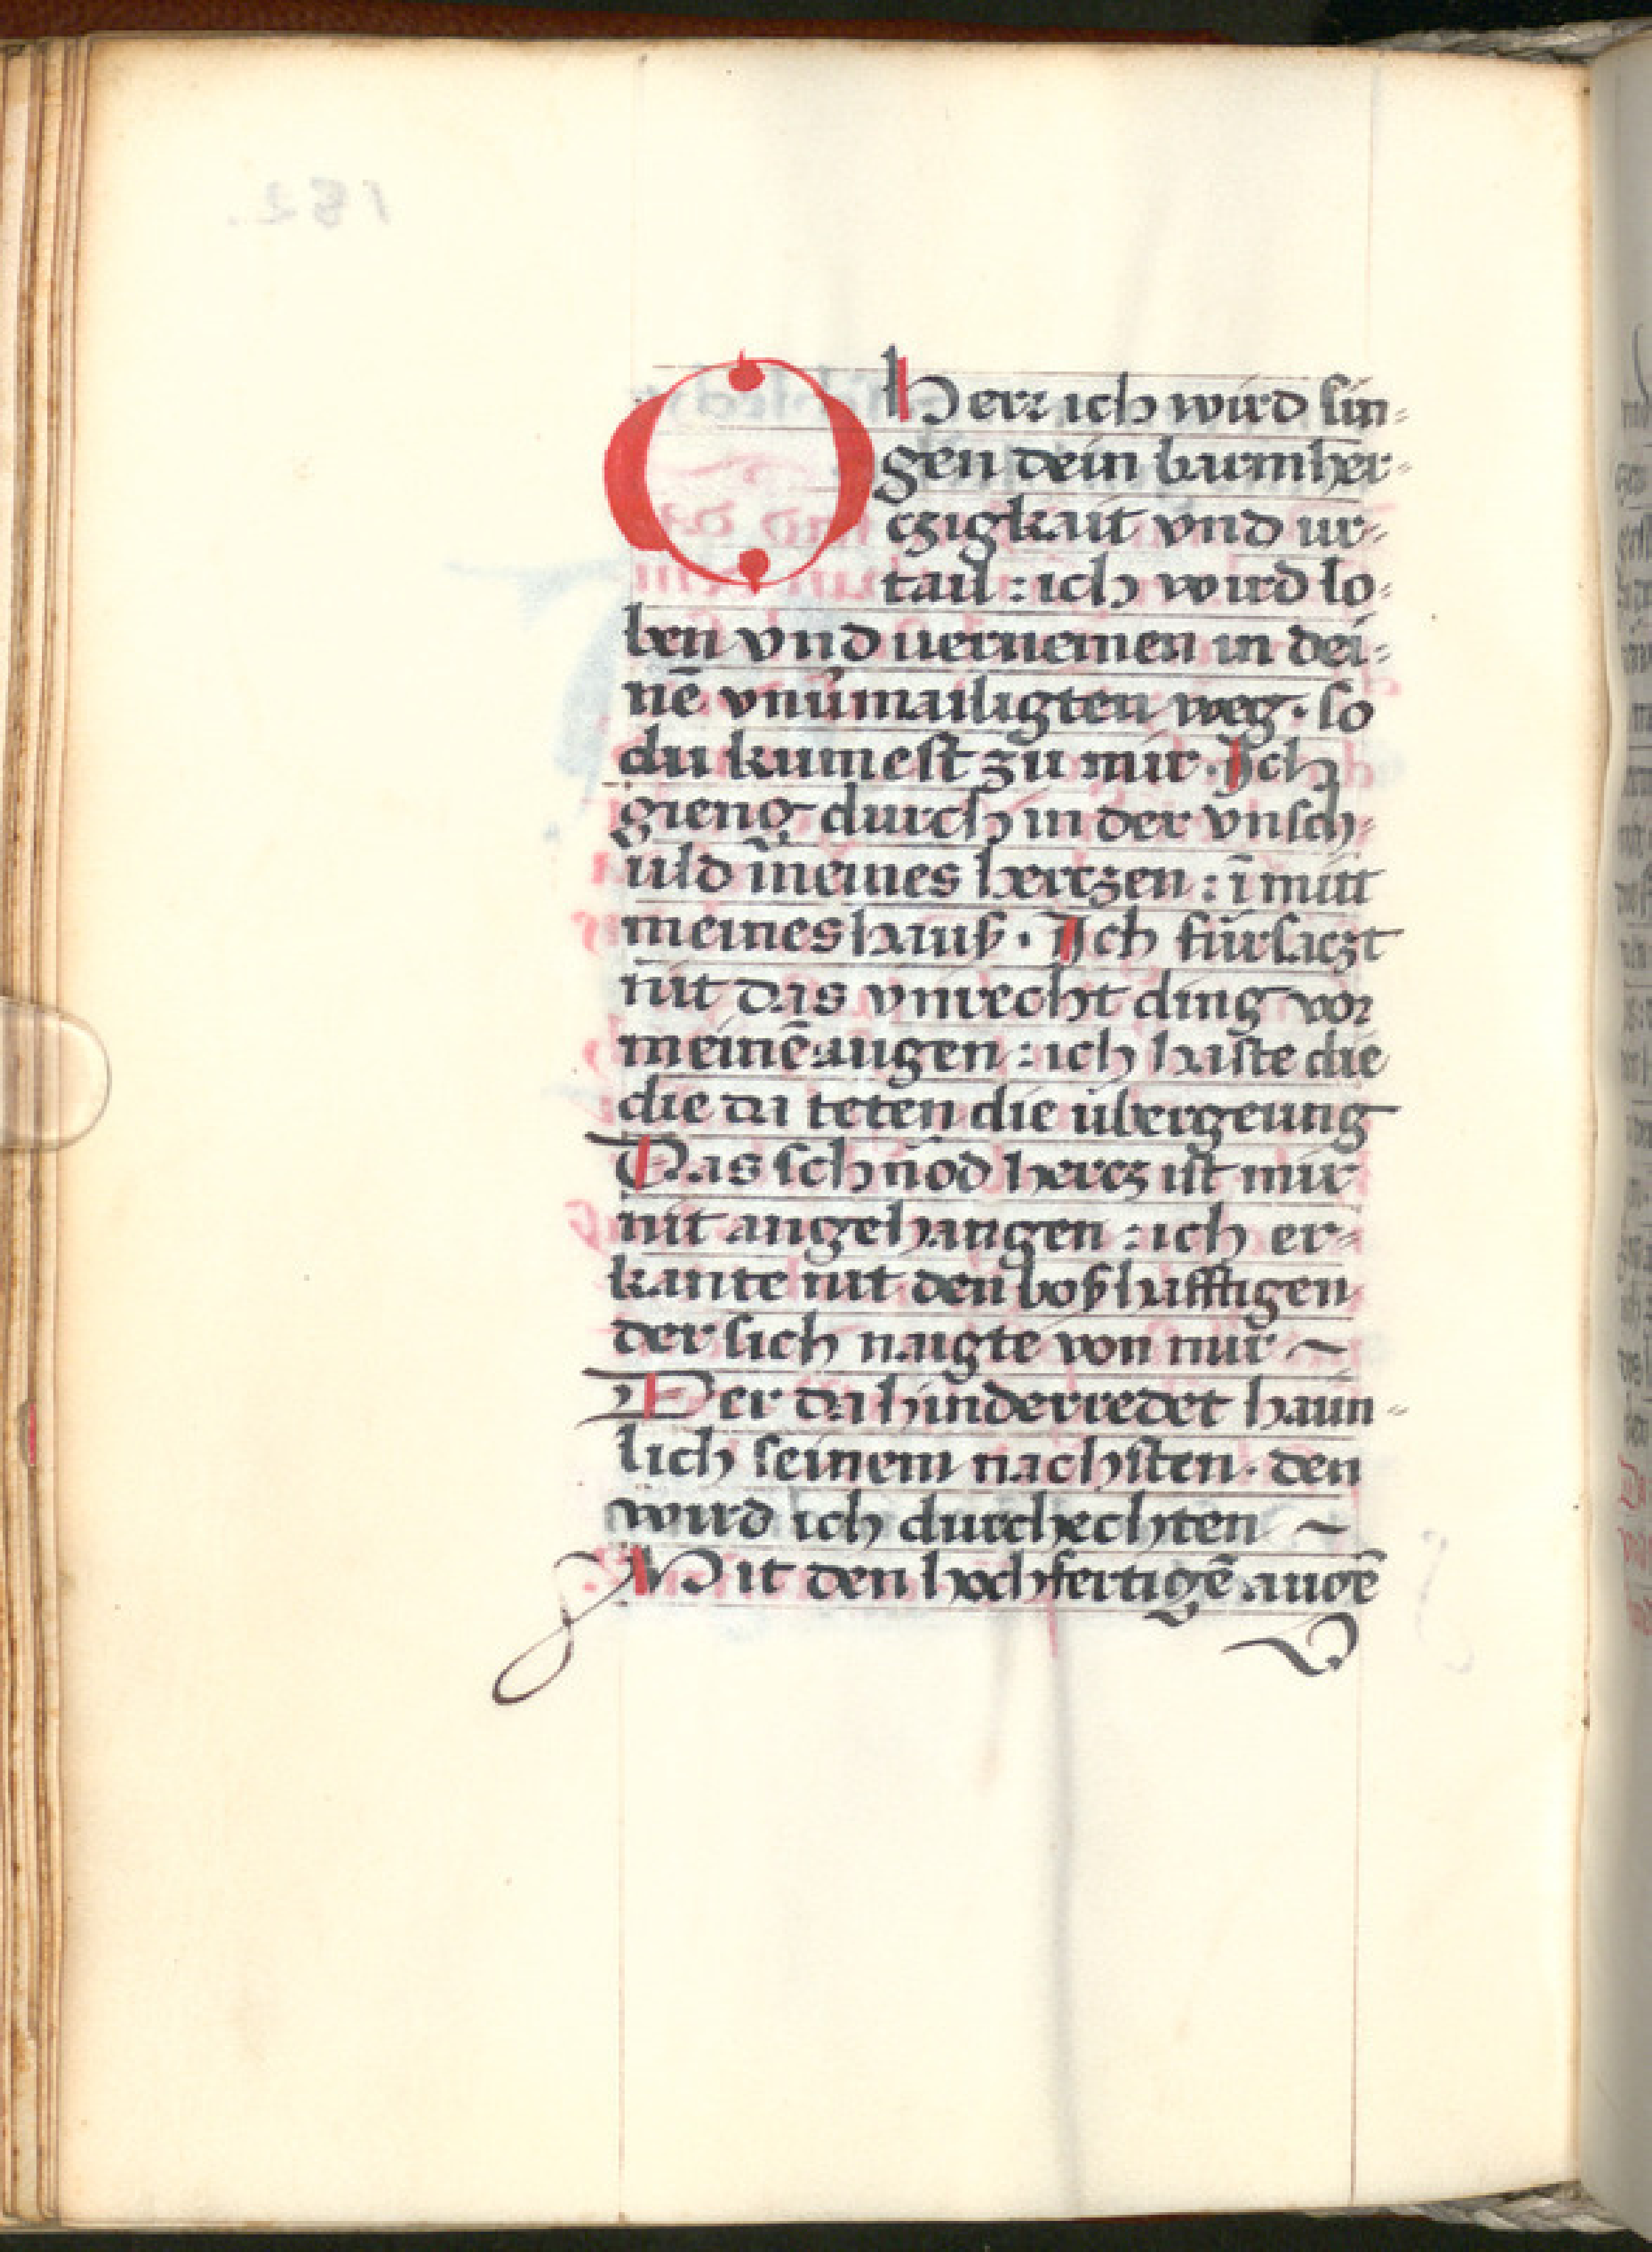 O Herr ich wird sin=
gen dein barmher=
czigkait vnd ur=
tail : ich wird lo=
ben vnd uernemen in dei=
nē vnūmailigten weg · so
du kumest zu mir · Ich
gieng durch in der vnsch=
uld meines hertzen : ī mitt
meines hauß · Ich fürsaczt
nit das vnrecht ding vor
meinē augen : ich haste die
die da teten die übergeung
Das schnöd hercz ist mir
nit angehangen : ich er=
kante nit den boßhafftigen
der sich naigte von mir ~
Der da hinderredet haim=
lich seinem nachsten · den
wird ich durchechten ~
Mit den hochfertigē augē